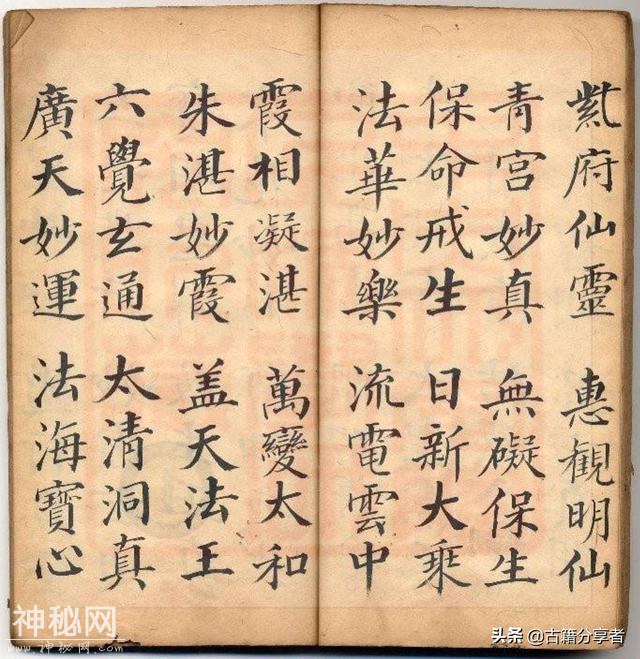 紫府仙靈 惠観明仙
青宮妙真 無礙保生
保命戒生 日新大乗
法華妙樂 流電雲中
霞相凝湛 萬變太和
朱湛妙霞 盖天法王
六覺玄通 太清洞真
廣天妙運 法海寶心
神秘网
www.神秘网.com
头条 @古籍分享者